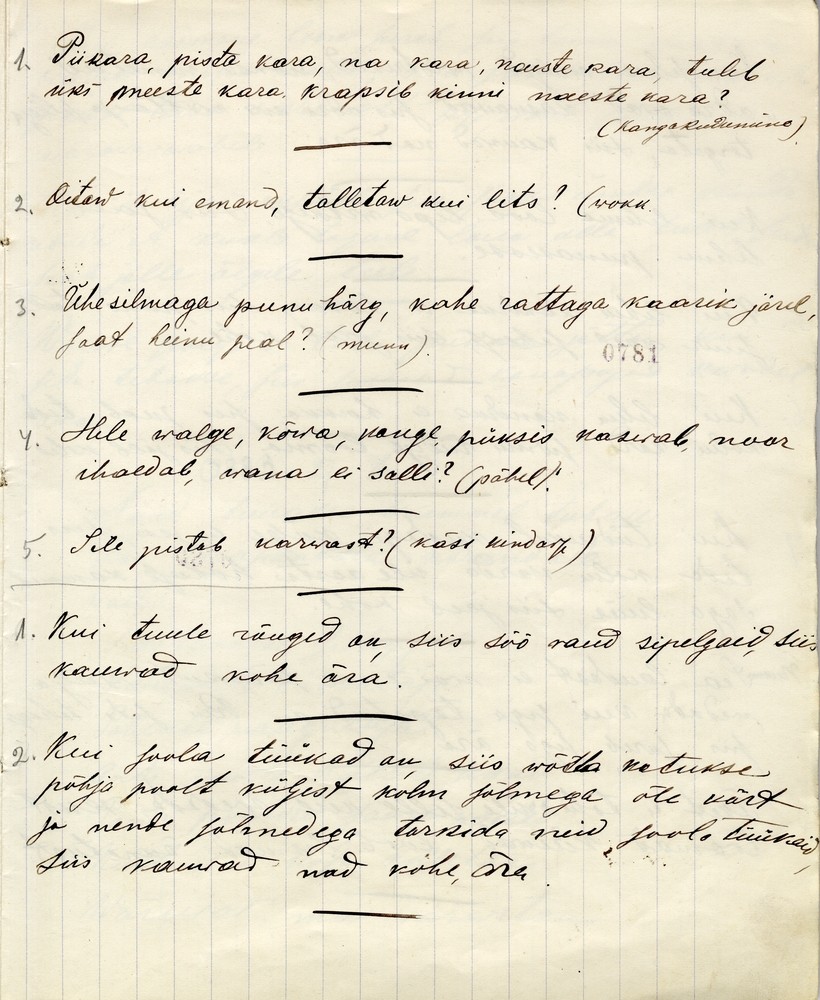 1. Piikara, pista kara, na kara, naiste kara, tuleb
üks meeste kara krapsib kinni naeste kara?
(Kangakudumine)
2. Oitaw kui emand, talletaw kui lits? (wokk
3. Ühesilmaga punu härg, kahe rattaga kaarik järel,
saat heinu peal? (munn).
0781
4. Hele walge, kõwa, kange, püksis kaswab, noor
ihaldab, wana ei salli? (pähel)!
5. Sile pistab karwast? (käsi kindasse)
1. Kui tuule rõuged on, siis söö raud sipelgaid, siis
kauwad kohe ära.
2. Kui soola tüükad on siis wõtta katukse
põhja poolt küljest kolm sõlmega õle kõrt
ja nende sõlmedega torkida neid soola tüükaid,
siis kauwad nad kohe, ära